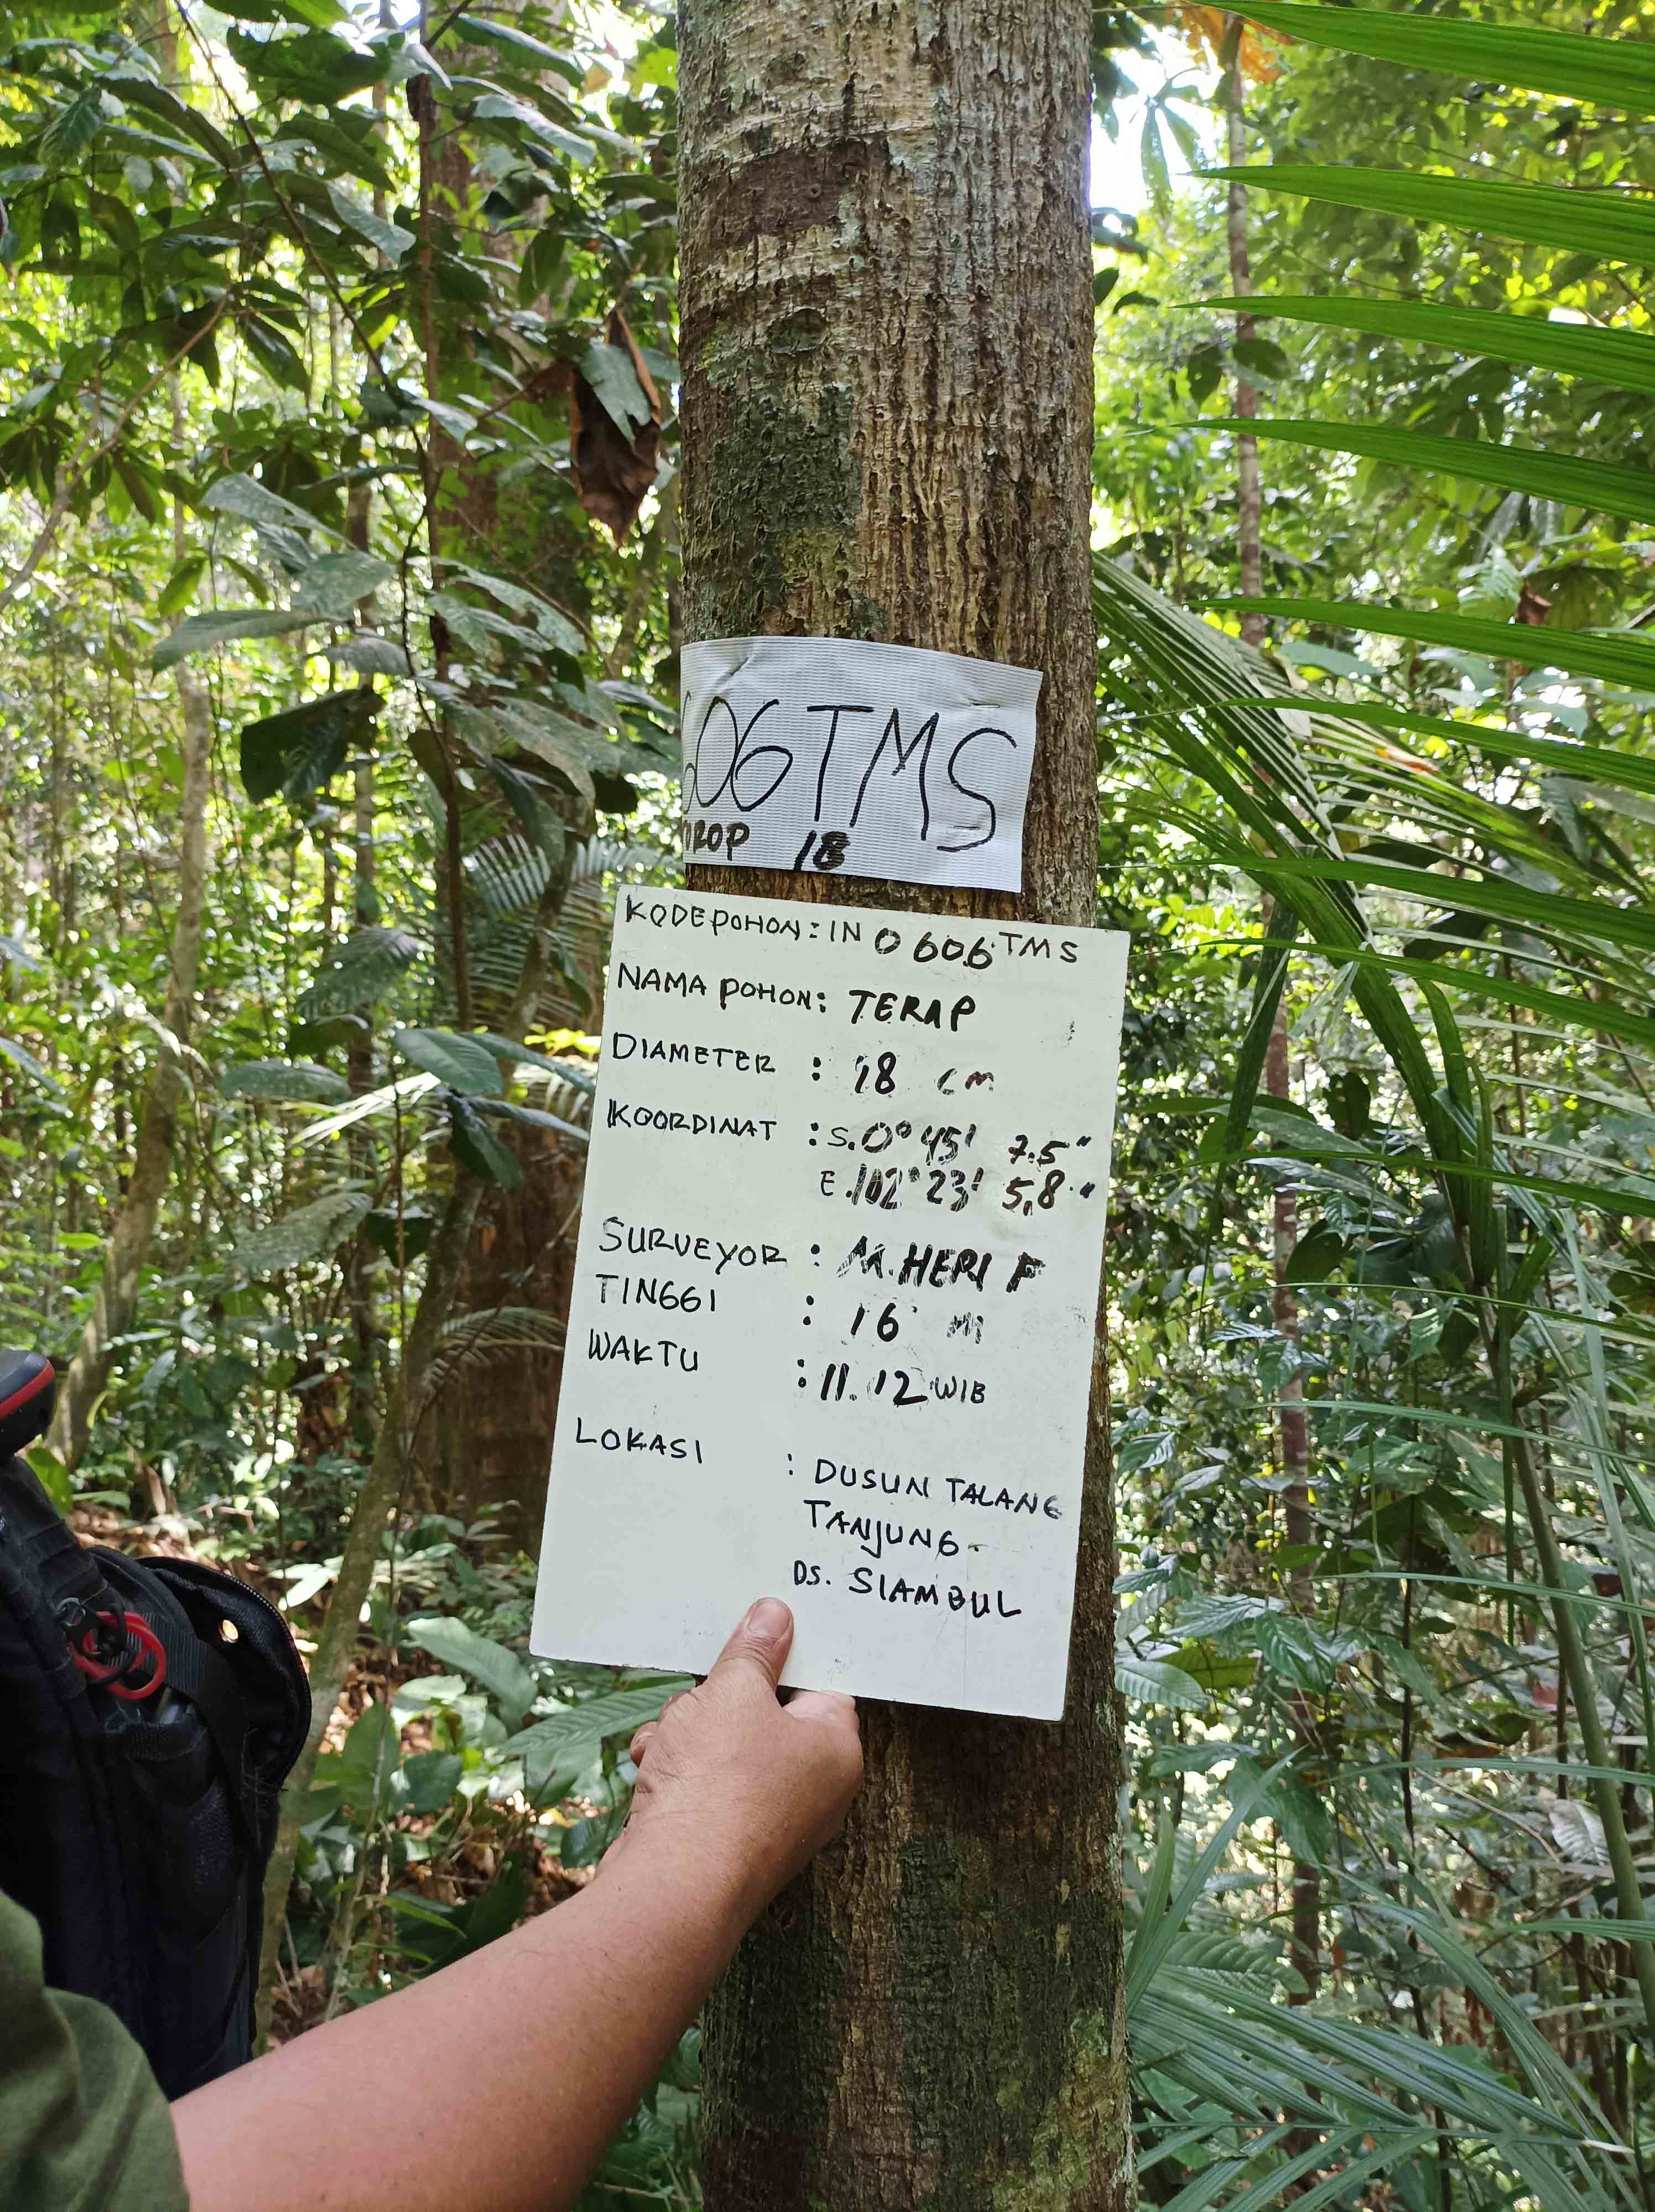 606TMS
18
KODE POHON : IN 0606 TMS
NAMA POHON : TERAP
DIAMETER : 18 cm
KOORDINAT : S. 0° 45' 7.5"
E. 102° 23' 5,8"
SURVEYOR : M. HERI F
TINGGI : 16 m
WAKTU : 11.12 WIB
LOKASI : DUSUN TALANG
TANJUNG -
DS. SIAMBUL